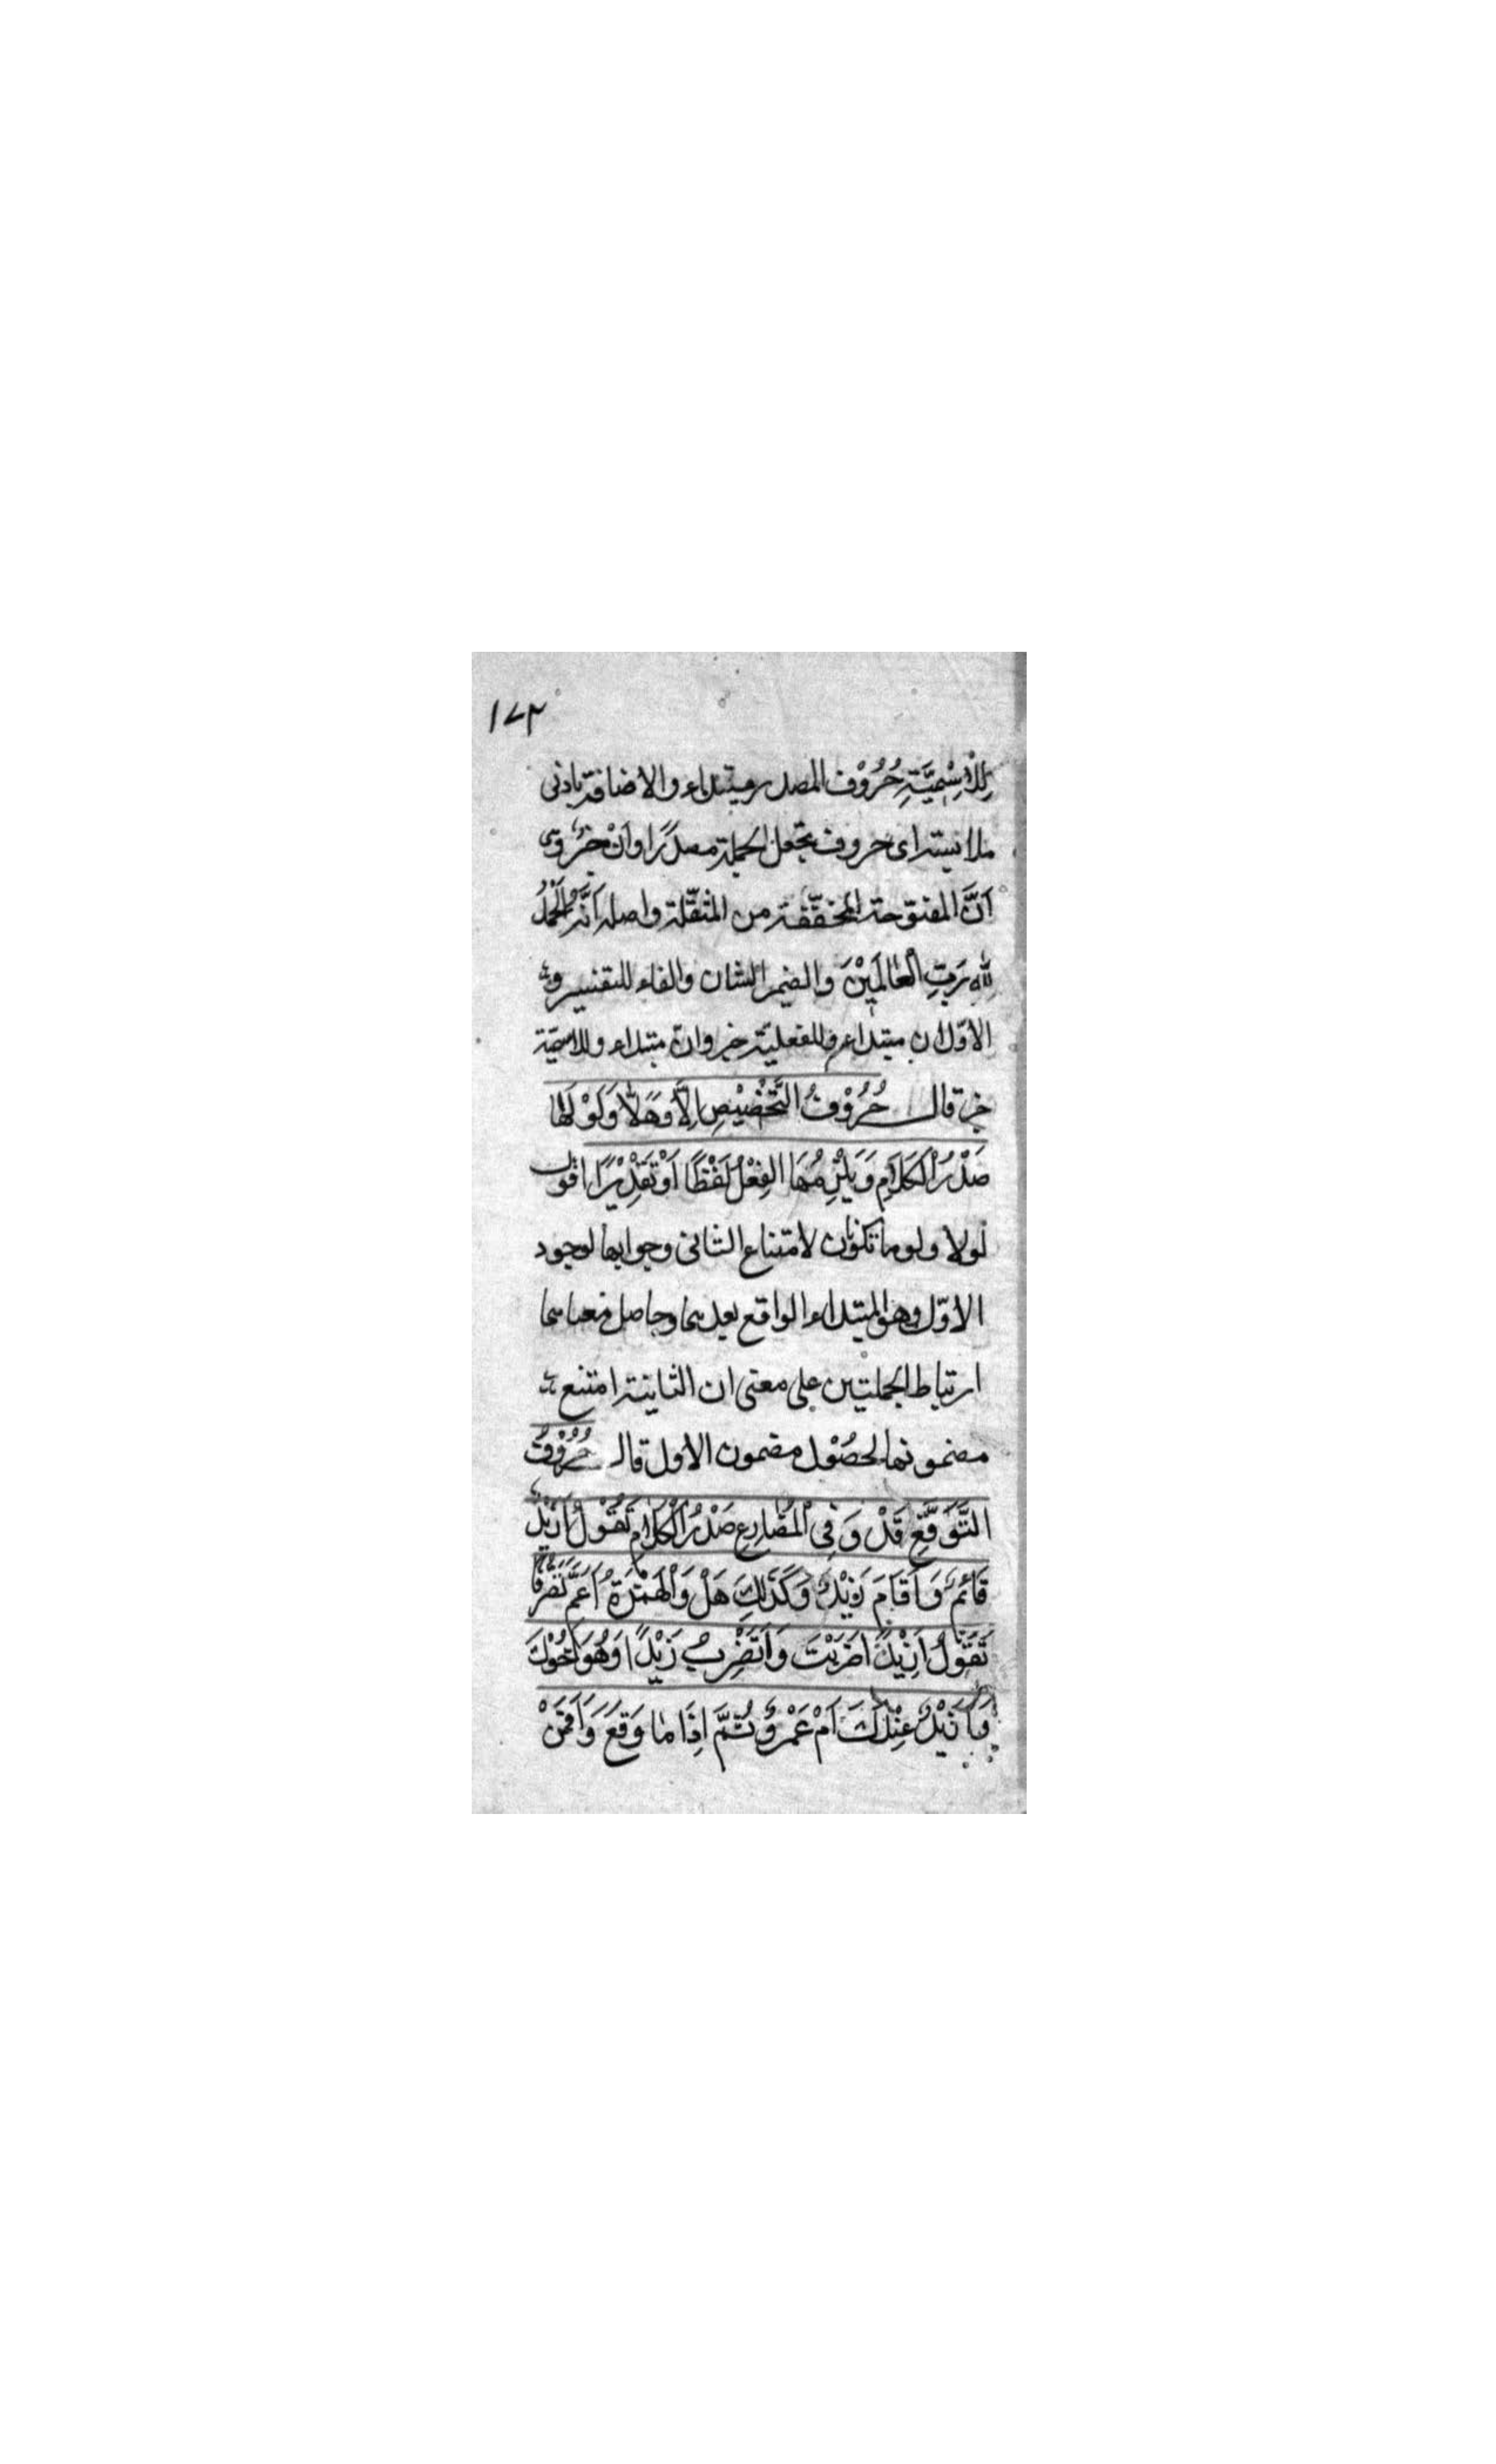 ١٧٣
لِلْاِسْمِيَّةِ حُرُوْف المصدر مبتداء والاضافة بادنى
ملابسة اى حروف تجعل الجملة مصدرًا وانْ خبر وهى
اَنَّ المفتوحة المخفّفة من المثقّلة واصله اَنَّه الْحَمْدُ
لِلّٰه رَبِّ الْعَالَمِيْنَ والضمير الشان والفاء للتفسير و
الاوّل ان مبتداء وللفعليّة خبر وانّ مبتداء وللاسميّة
خبر قال حُرُوْفُ التَّحْضِيْضِ اَلَّا وَهَلَّا وَلَوْ لَهَا
صَدْرُ الْكَلَامِ وَيَلْزِمُهَا الفِعْلُ لَفْظًا اَوْ تَقْدِيْرًا اقول
لولا ولوما تكونان لامتناع الثانى وجوابها لوجود
الاوّل وهو المبتداء الواقع بعدهما وحاصل معناهما
ارتباط الجملتين على معنى ان الثانية امتنع
مضمونها لحصُوْل مضمون الاول قال حُرُوْفُ
التَّوَقُّعِ قَدْ وَفِى الْمُضَارِعِ صَدْرُ الْكَلَامِ تَقُوْلُ اَزَيْدٌ
قَائِمٌ وَاَقَامَ زَيْدٌ وَكَذٰلِكَ هَلْ وَالْهَمْزَةُ اَعَمُّ تَصَرُّفًا
تَقُوْلُ اَزَيْدًا ضَرَبْتَ وَاَتَضْرِبُ زَيْدًا وَهُوَ اَخُوْكَ
وَاَزَيْدٌ عِنْدَكَ اَمْ عَمْرٌو ثُمَّ اِذَا مَا وَقَعَ وَاَفَمَنْ